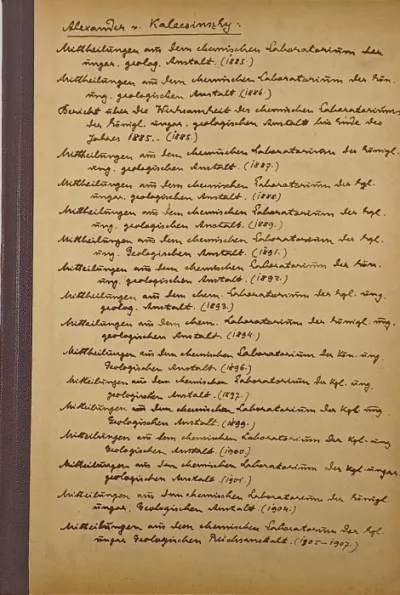 Alexander v. Kalecsinszky:
Mittheilungen aus dem chemischen Laboratorium der
ungar. geolog. Anstalt. (1885.)
Mittheilungen aus dem chemischen Laboratorium der Kön.
ung. geologischen Anstalt. (1886.)
Bericht über die Wirksamkeit des chemischen Laboratoriums
der Königl. ungar. geologischen Anstalt bis Ende des
Jahres 1885. - (1885.)
Mittheilungen aus dem chemischen Laboratorium der Königl.
ung. geologischen Anstalt. (1887.)
Mittheilungen aus dem chemischen Laboratorium der Kgl.
ungar. geologischen Anstalt. (1888.)
Mittheilungen aus dem chemischen Laboratorium der Kgl.
ung. geologischen Anstalt. (1889.)
Mittheilungen aus dem chemischen Laboratorium der Kgl.
ung. Geologischen Anstalt. (1891.)
Mittheilungen aus dem chemischen Laboratorium der Kön.
ung. geologischen Anstalt. (1892.)
Mittheilungen aus dem chem. Laboratorium der Kgl. ung.
geolog. Anstalt. (1893.)
Mittheilungen aus dem chem. Laboratorium der Königl. ung.
geologischen Anstalt. (1894.)
Mittheilungen aus dem chemischen Laboratorium der Kön. ung.
Geologischen Anstalt. (1896.)
Mitteilungen aus dem chemischen Laboratorium der Kgl. ung.
geologischen Anstalt. (1897.)
Mitteilungen aus dem chemischen Laboratorium der Kgl ung.
Geologischen Anstalt. (1899.)
Mitteilungen aus dem chemischen Laboratorium der Kgl. ung
Geologischen Anstalt. (1900.)
Mitteilungen aus dem chemischen Laboratorium der Kgl. ungar.
geologischen Anstalt. (1901.)
Mitteilungen aus dem chemischen Laboratorium der Königl.
ungar. Geologischen Anstalt. (1904.)
Mitteilungen aus dem chemischen Laboratorium der Kgl.
ungar Geologischen Reichsanstalt. (1905-1907.)